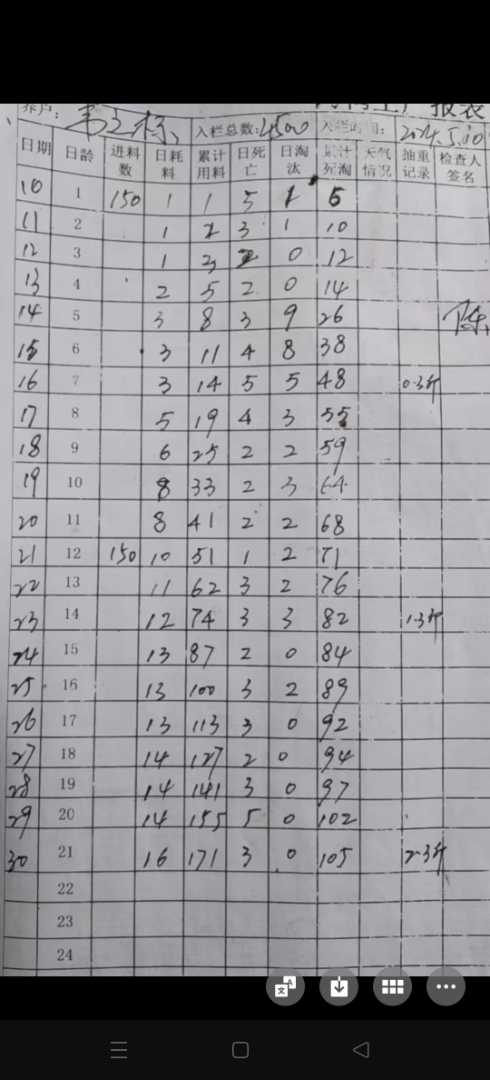 养户: 报表
入栏总数: 4500 入栏时间: 2024.5.10
日期 日龄 进料数 日耗料 累计用料 日死亡 日淘汰 累计死淘 天气情况 抽重记录 检查人签名
10 1 150 1 1 5 1 6
11 2 1 2 3 1 10
12 3 1 3 2 0 12
13 4 2 5 2 0 14
14 5 3 8 3 9 26
15 6 3 11 4 8 38
16 7 3 14 5 5 48 0.3斤
17 8 5 19 4 3 55
18 9 6 25 2 2 59
19 10 8 33 2 3 64
20 11 8 41 2 2 68
21 12 150 10 51 1 2 71
22 13 11 62 3 2 76
23 14 12 74 3 3 82 1.3斤
24 15 13 87 2 0 84
25 16 13 100 3 2 89
26 17 13 113 3 0 92
27 18 14 127 2 0 94
28 19 14 141 3 0 97
29 20 14 155 5 0 102
30 21 16 171 3 0 105 2.3斤
22
23
24